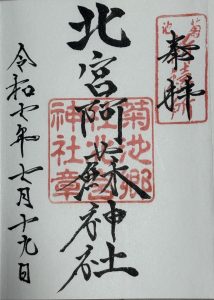 奉拝
北宮阿蘇神社
菊池郷
神社章
令和七年七月十九日